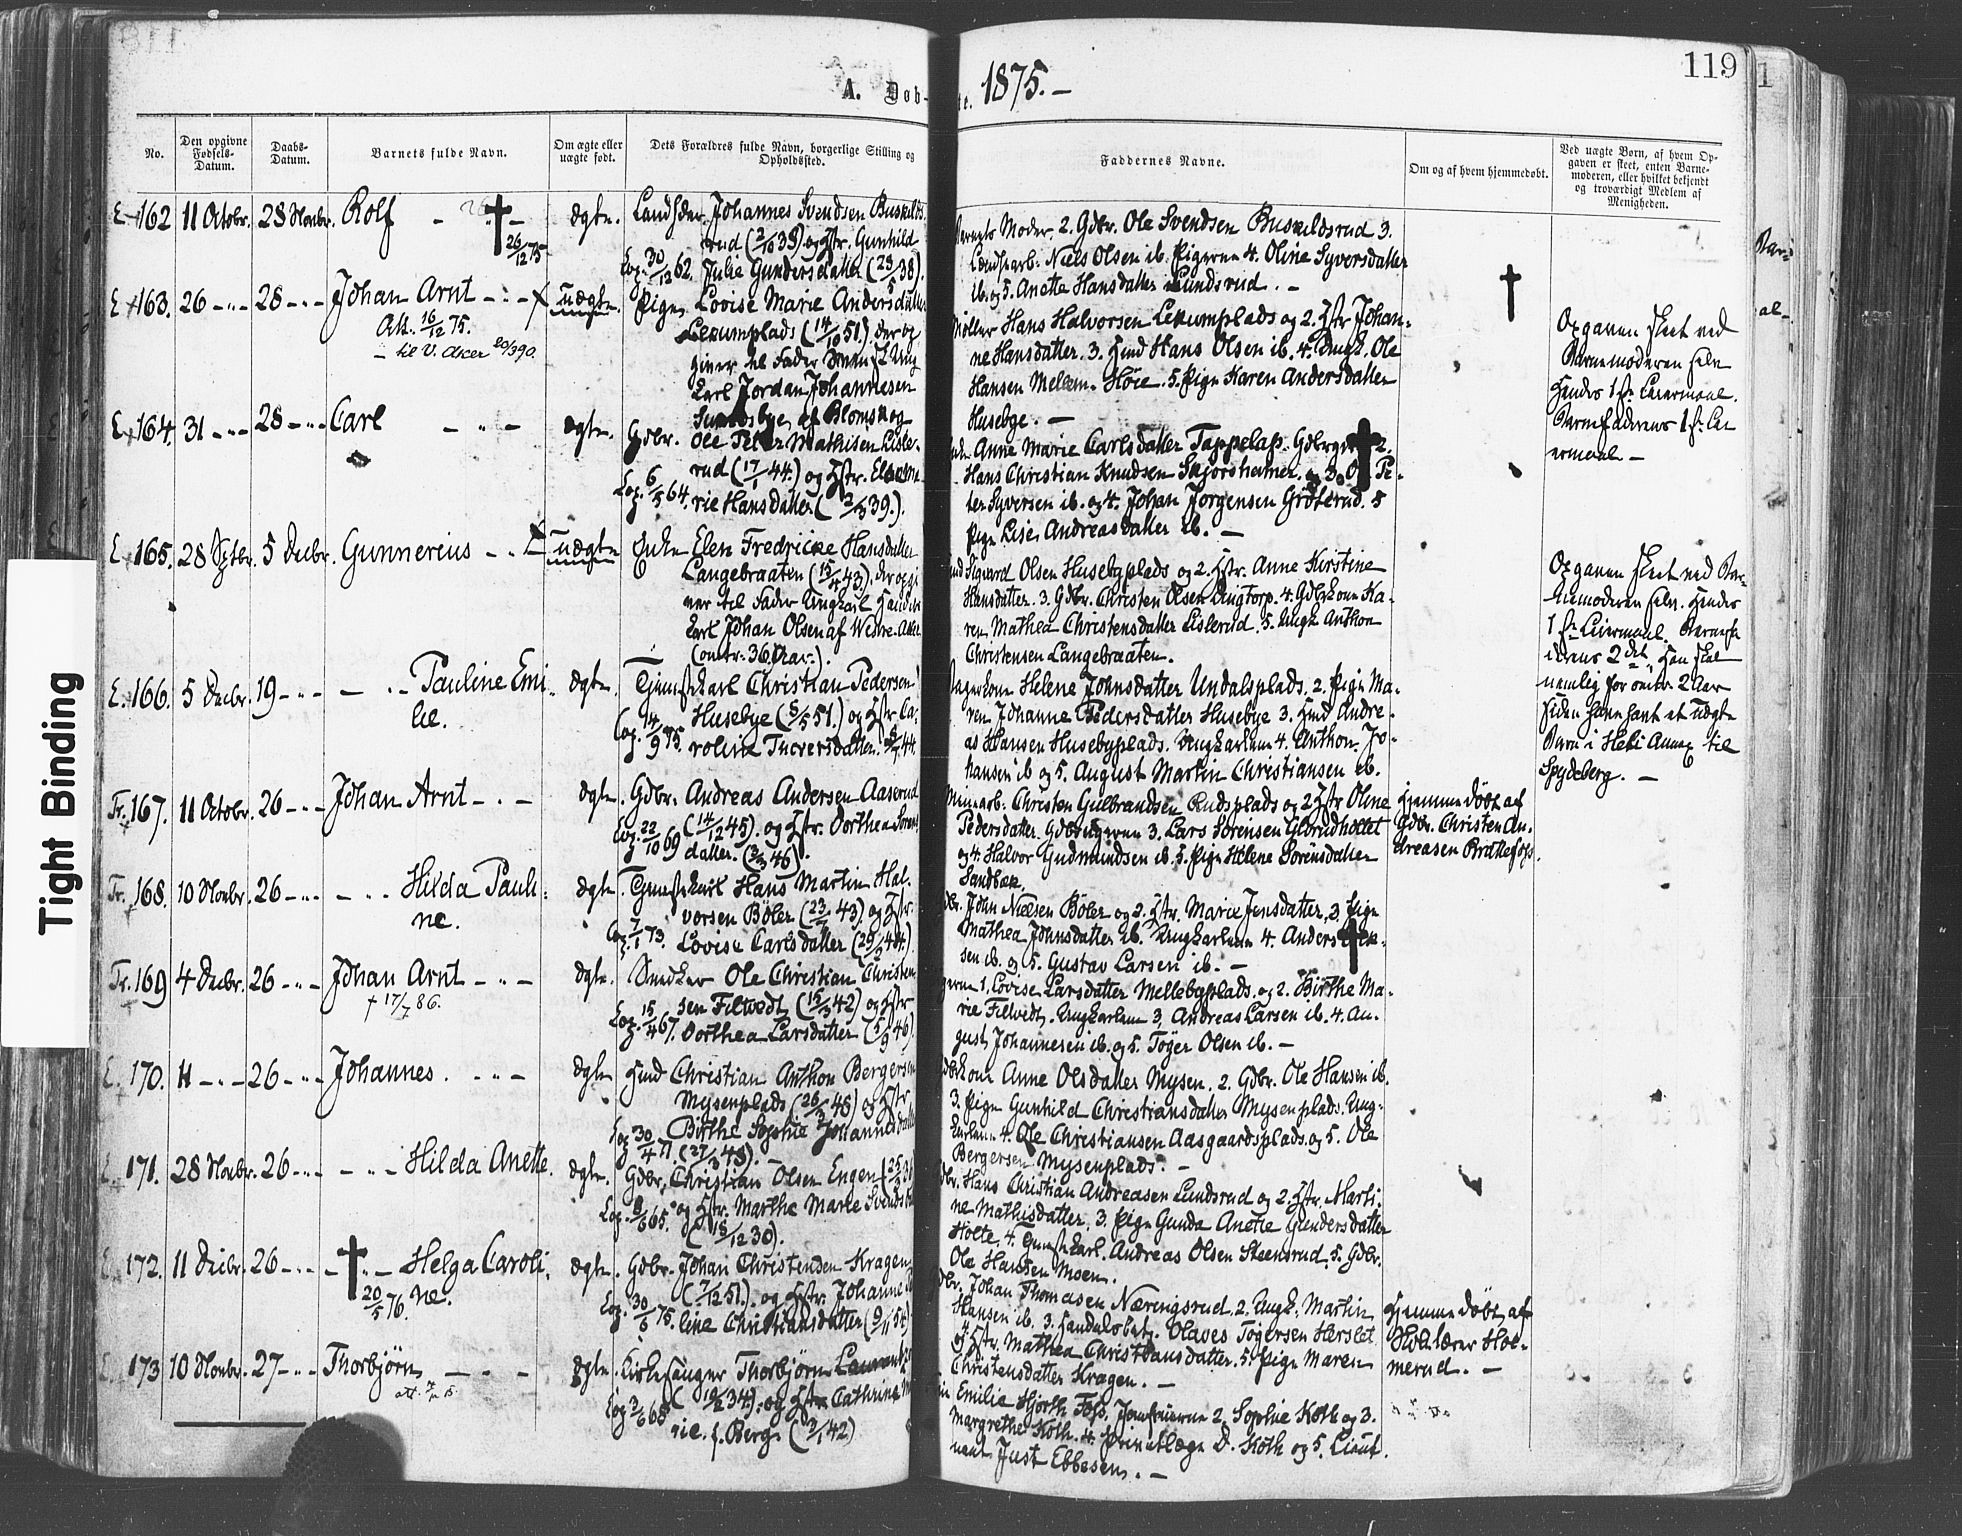 119
A. Døb-
te. 1875. —
No.
Den opgivne Fødsels-Datum.
Daabs-Datum.
Barnets fulde Navn.
Om ægte eller uægte født.
Dets Forældres fulde Navn, borgerlige Stilling og Opholdssted.
Faddernes Navne.
Om og af hvem hjemmedøbt.
Ved uægte Børn, af hvem Op-
gaven er skeet, enten Barne-
moderen, eller hvilket bekjendt
og troværdigt Medlem af
Menigheden.
E 162 11 Octobr. 28 Novbr. Rolf - " -
26/12 75
ægte. Johannes Svendsen Buskilds
rud (2/10 38) og Hstr. Gunhild
Cop. 30/12 62. Julie Gundersdatter (23/5 38).
Barnets Moder 2. Gdbr. Ole Svendsen Buskildsrud 3.
Niels Olsen ib. Pigerne 4. Oline Syversdatter
ib. og 5. Anette Hansdatter Lundsrud. -
E 163. 26 - " - 28 - " - Johan Arnt - " -
Att. 16/12 75.
- til V. Aker 20/3 90.
uægte Pige Lovise Marie Andersdatter
Lekumplads (14/10 51). der op
giver til Fader
Karl Jordan Johannesen
af
Møller Hans Halvorsen Lekumplads og 2. Hstr Johan-
ne Hansdatter. 3. Hmd Hans Olsen ib. 4. Ungk. Ole
Hansen Mellem- Høie. 5. Pige Karen Andersdatter
Husebye. —
Opgaven skeet ved
Barnemoderen selv
Hendes 1ste Leiermaal.
Barnefaderens 1ste Lei
ermaal —
E 164. 31 - " - 28 - " - Carl - " -
ægte. Gdbr. Ole Peter Mathisen Lisle-
rud (17/1 44.) og Hstr.
Cop. 6/5 64. rie Hansdatter (2/3 39.).
Anne Marie Carlsdatter Tappelaps. Gdbrgne 2.
Hans Christian Knudsen Skjørshamer og 3. O. Pe-
ter Syversen ib. og 4. Johan Jørgensen Gröterud. 5
Pige Lise Andreasdatter ib. —
E 165. 28 Sptbr. 5 Decbr. Gunnerius - "
uægte Enke Elen Fredricke Hansdatter
Langebraaten (15/4 43). der opgi
ver til Fader Ungkarl
Karl Johan Olsen af Westre-Aker
(omtr. 36 Aar.).
Hmd Sigvard Olsen Husebyplads og 2. Hstr. Anne Kirstine
Hansdatter. 3. Gdbr. Christen Olsen Ungtorp. 4. Gdbrkone Ka-
ren Mathea Christensdatter Lislerud. 5. Ungk Anthon
Christensen Langebraaten.
Opgaven skeet ved Bar-
nemoderen selv. Hendes
1ste Leiermaal. Barnefa
derens 2det. Han skal
nemlig for omtr. 2 Aar
siden have havt et uægte
Barn i Heli Annex til
Spydeberg. —
E. 166. 5 Decbr. 19 - " - — " - Pauline Emi-
lie.
ægte. Tjenestekarl Christian Pedersen
Husebye (5/5 51.) og Hstr Ca-
Cop. 14/9 75. roline
Helene Johnsdatter Undalsplads. 2. Pige Ma-
ren Johanne Pedersdatter Husebye 3. Hmd Andre-
as Hansen Husebyplads. Ungkarlene 4. Anthon Jo-
hansen ib og 5. August Martin Christiansen ib.
Tr. 167. 11 Octobr. 26 - " - Johan Arnt - " -
ægte. Gdbr. Andreas Andersen Aaserud
Cop. 22/10 69 (14/12 45). og Hstr. Dorthea Sørens
datter. (3/3 46).
Minearb. Christen Gulbrandsen Rudsplads og 2 Hstr Oline
Pedersdatter. Gdbrugerne 3. Lars Sørensen Glorudholtet
og 4. Halvor Gudmundsen ib. 5. Pige Helene Sørensdatter
Sandbæk.
Hjemmedøbt af
Gdbr. Christen An-
dreasen Brattefoss.
Tr. 168. 10 Novbr. 26 - " - - " - Hilda Pauli-
ne.
ægte. Tjenestekarl Hans Martin Hal-
vorsen Böler (23/1 43). og Hstr.
Cop. 7/1 73. Lovise Carlsdatter (29/2 44.)
Gdbr. John Nielsen Böler og 2. Hstr. Marie Jensdatter. 3. Pige
Mathea Johnsdatter ib. Ungkarlene 4. Anders
sen ib. og 5. Gustav Larsen ib. —
Tr. 169 4 Decbr. 26 - " - Johan Arnt - " -
† 17/7 86.
ægte. Snedker Ole Christian Christen
sen Filtvedt (15/3 42) og Hstr
Cop. 15/4 67. Dorthea Larsdatter (5/9 46).
1. Lovise Larsdatter Mellebyplads. og 2. Birthe Ma-
rie Filtvedt. Ungkarlene 3. Andreas Larsen ib. 4. Au-
gust Johannesen ib. og 5. Töger Olsen ib. —
E. 170. 11 - " - 26 - " - Johannes. - " -
ægte Hmd Christian Anthon Bergersen
Mysenplads (26/3 48) og Hstr
Cop 30/4 71. Birthe Sophie Johannesdatter
(27/3 48). —
Gdbrkone Anne Olsdatter Mysen. 2. Gdbr. Ole Hansen ib.
3. Pige Gunhild Christiansdatter Mysenplads. Ung-
karlene 4. Ole Christiansen Aasgaardsplads og 5. Ole
Bergersen Mysenplads. —
E. 171. 28 Novbr. 26 - " - - " - Hilda Anette.
ægte. Gdbr. Christian Olsen Engen
Cop. 8/6 65. og Hstr. Marthe Marie Svends
(18/12 30).
Gdbr. Hans Christian Andreasen Lundsrud og 2. Hstr. Marti-
ne Mathisdatter. 3. Pige Gunda Anetie Gundersdatter
Holte. 4. Tjenestekarl. Andreas Olsen Steensrud. 5. Gdbr.
Ole Hansen Moen.
E. 172. 11 Decbr. 26 - " - - " - Helga Caroli-
ne.
20/5 76.
ægte. Gdbr. Johan Christensen Kragen
(7/12 51.). og Hstr. Johanne
Cop. 30/6 75. line Christiansdatter (9/11 54)
Gdbr. Johan Thomasen Næringsrud. 2. Ungk. Martin
Hansen ib. 3. Olaves Tøgersen Herslet
og 4. Hstr. Mathea Christiansdatter. 5. Pige Maren
Christensdatter Kragen. —
Hjemmedøbt af
Skolelærer Hol-
merud. —
E. 173 10 Novbr. 27 - " - Thorbjörn - " -
ægte. Kirkesanger Thorbjörn
(19/2 34). og Hstr Cathrine Ma
Cop 3/6 68 rie. f. Berg. (3/1 42)
Emilie Hjorth Foss, Jomfruerne 2. Sophie Koth og 3.
Margrethe Koth. 4. Privatlæge D. Koth og 5. Lieut-
nant Just Ebbesen. —
Tight Binding